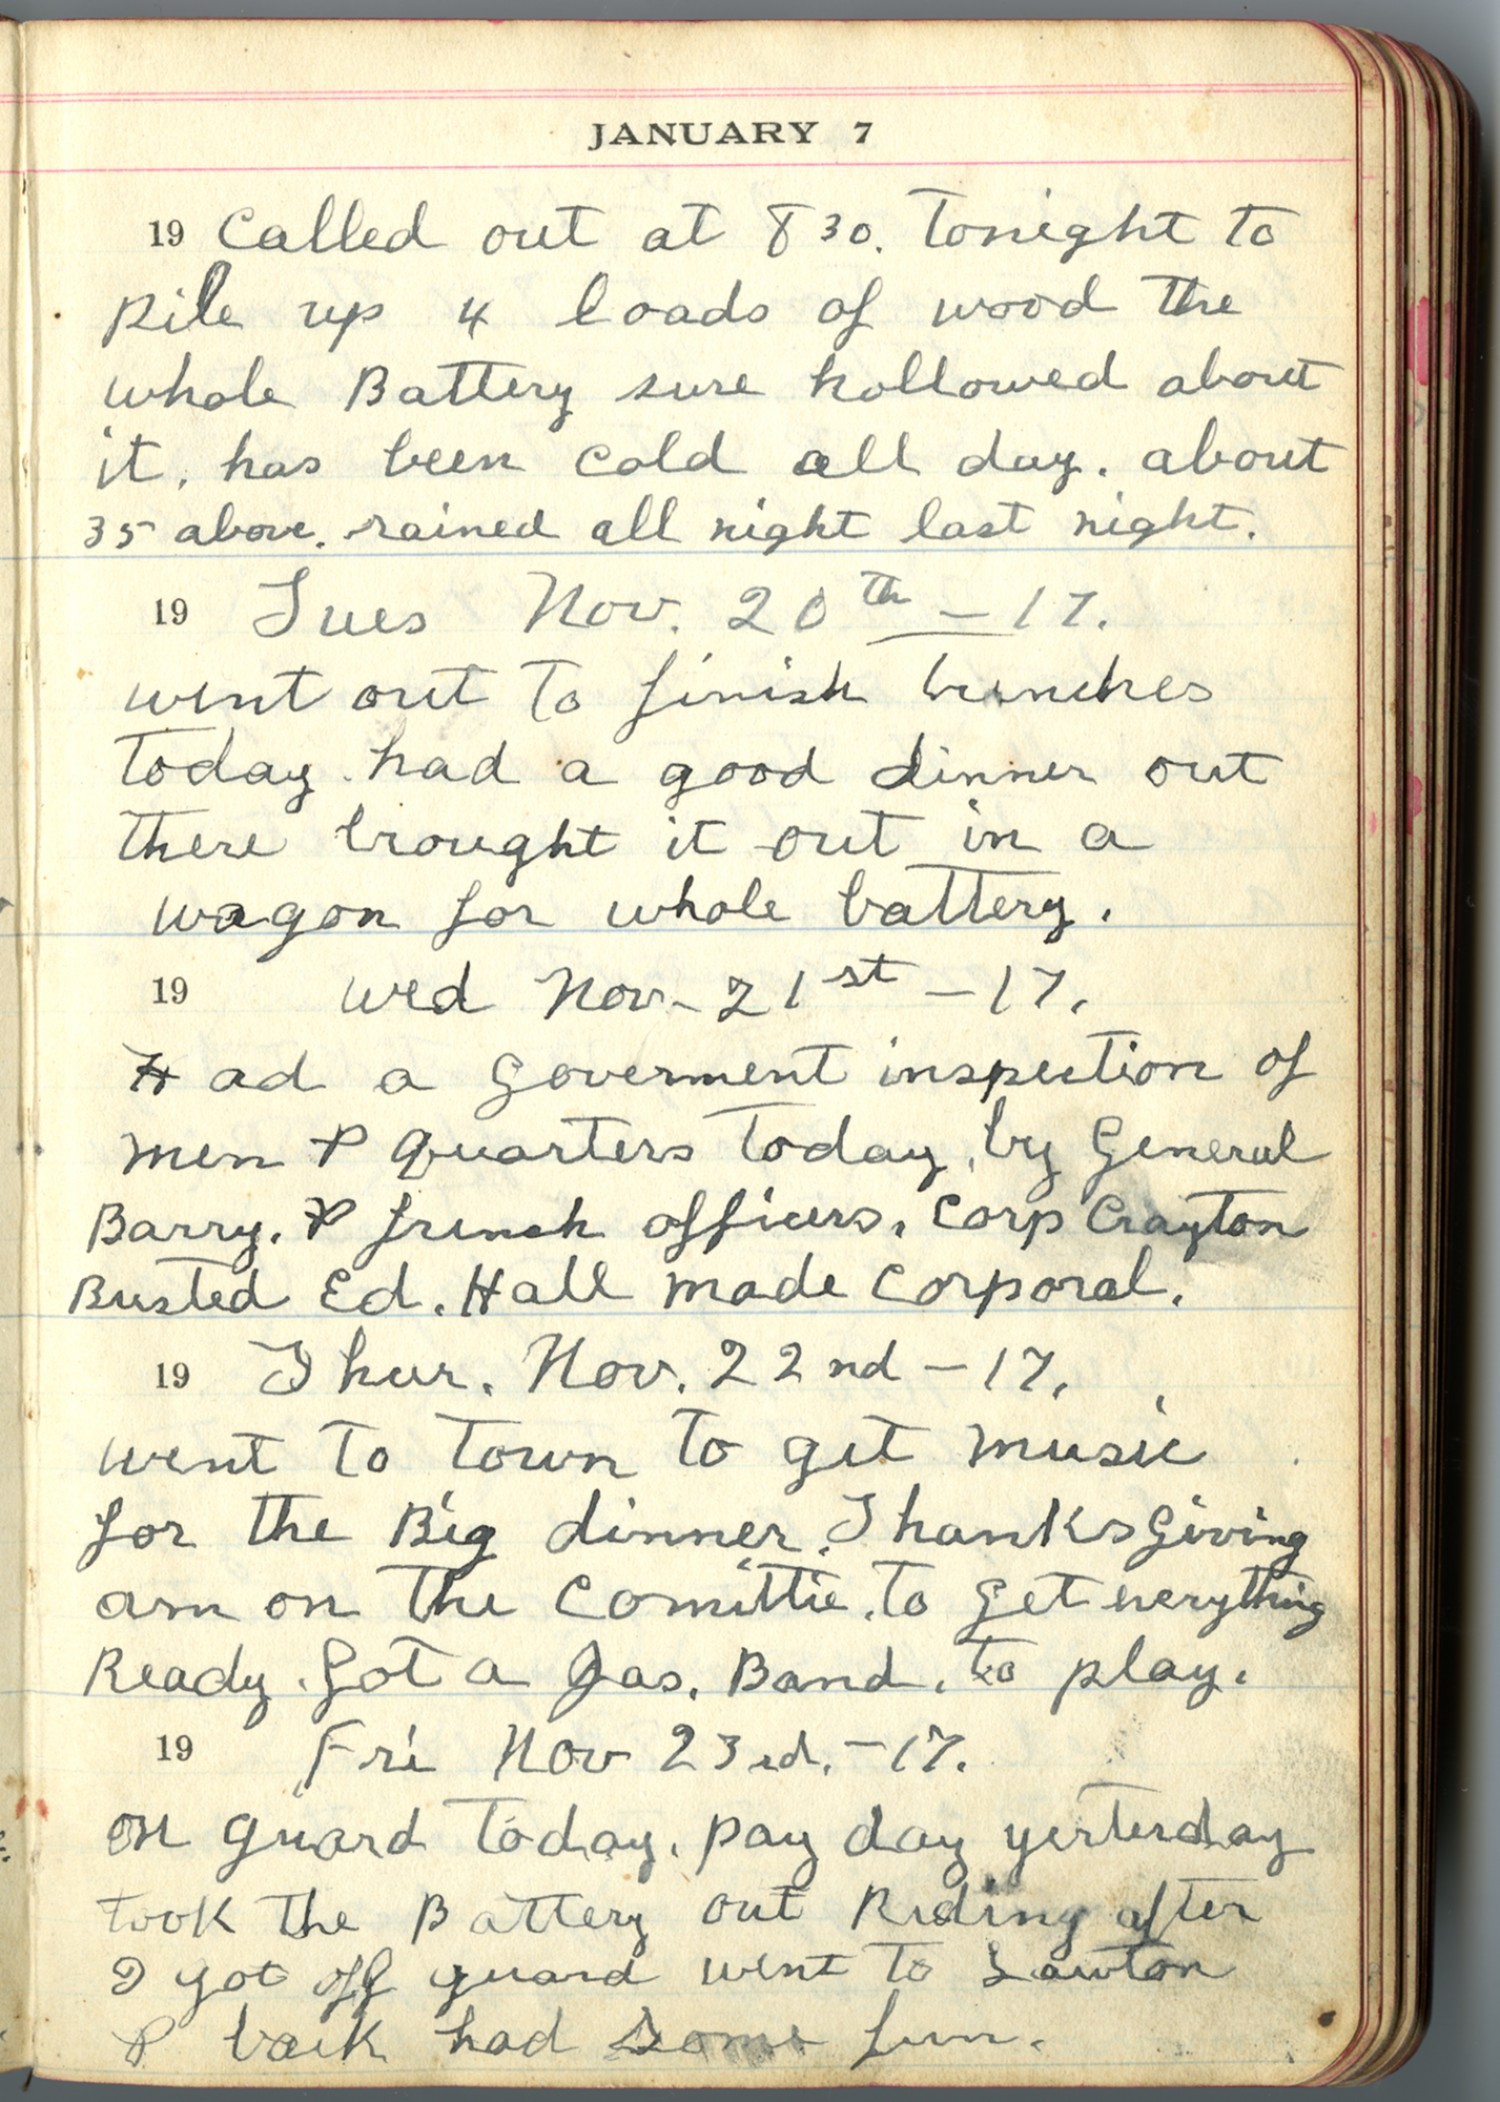 JANUARY 7
19 Called out at 8 30. Tonight to
Pile up 4 loads of wood the
whole Battery sure hollowed about
it. has been cold all day. about
35 above. rained all night last night.
19 Tues Nov. 20th - 17.
went out to finish trenches
today. had a good dinner out
there brought it out in a
wagon for whole battery.
19 Wed Nov. 21st - 17.
Had a Goverment inspection of
men & Quarters today, by General
Barry. & french officers. Corp Crayton
Busted Ed. Hall made Corporal.
19 Thur. Nov. 22nd - 17.
went to town to get music
for the Big dinner. ThanksGiving
am on the Comittie. to get everything
Ready. Got a Jas. Band. to play.
19 Fri Nov 23rd. - 17.
on guard today. pay day yesterday
took the Battery out Riding after
I got off guard went to Lawton
& back had some fun.